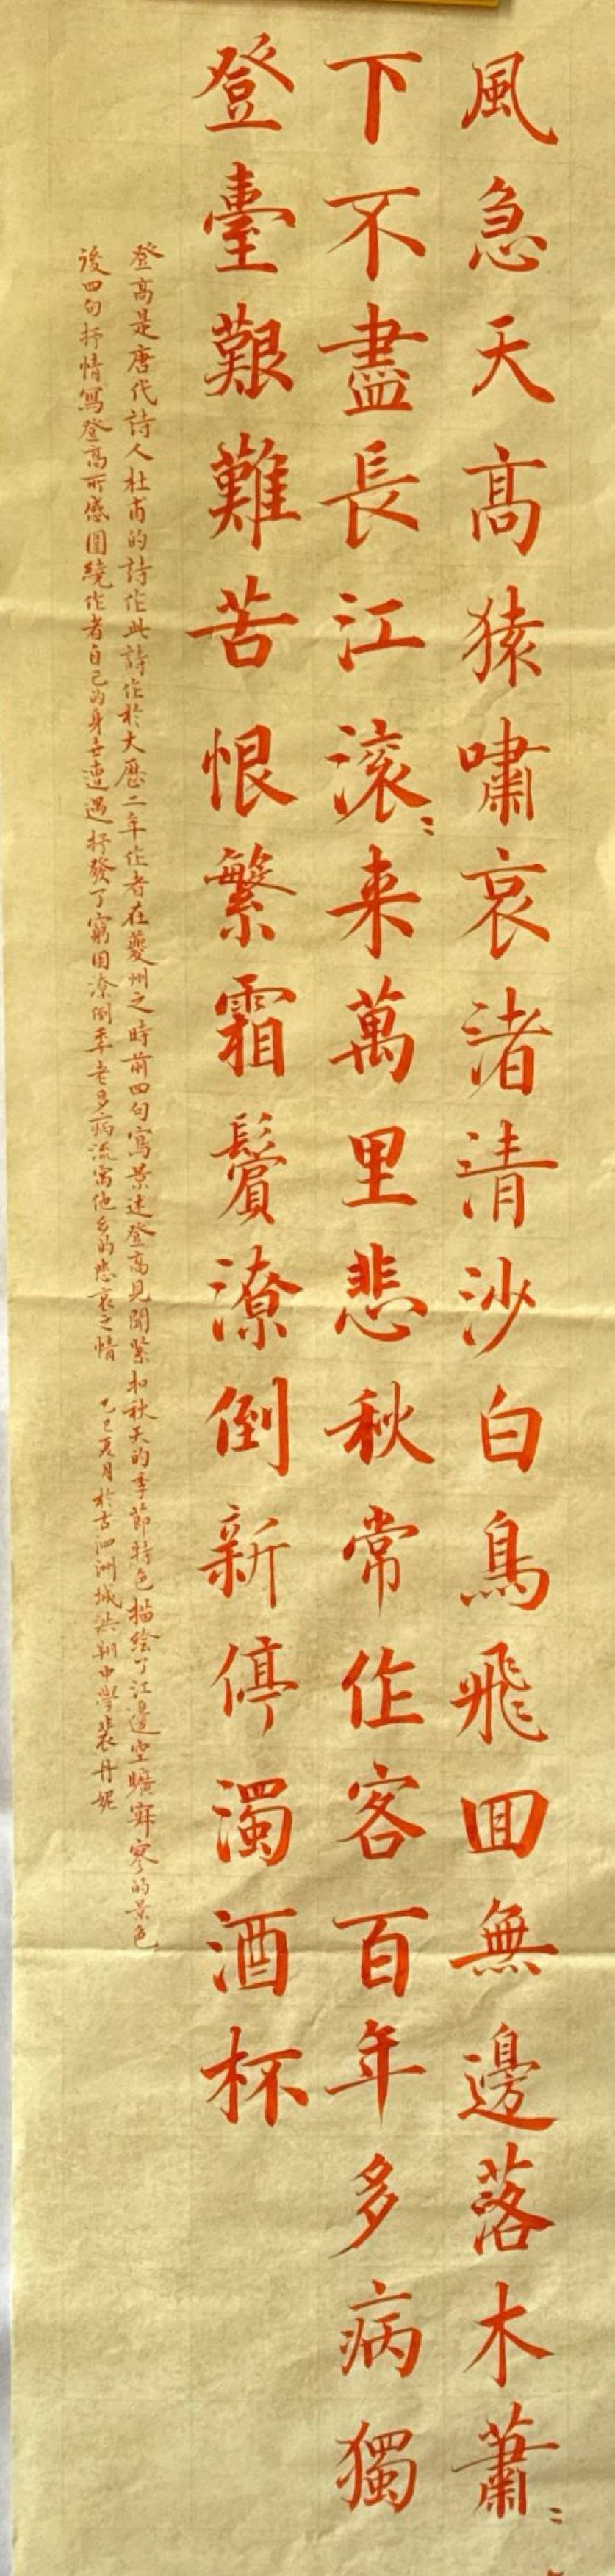 風急天高猿嘯哀渚清沙白鳥飛回無邊落木蕭〻
下不盡長江滚〻来萬里悲秋常作客百年多病獨
登臺艱難苦恨繁霜鬢潦倒新停濁酒杯
登高是唐代詩人杜甫的詩作此詩作於大歷二年作者在夔州之時前四句寫景述登高見聞緊扣秋天的季節特色描绘了江邊空曠寂寥的景色
後四句抒情寫登高所感圍繞作者自己的身世遭遇抒發了窮困潦倒年老多病流寓他乡的悲哀之情 乙巳夏月於古泗洲城 中學裴丹妮